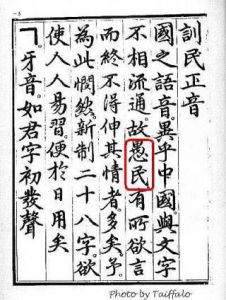 訓民正音
國之語音。異乎中國。與文字
不相流通。故愚民有所欲言
而終不得伸其情者多矣。予
為此憫然。新制二十八字。欲
使人人易習。便於日用矣
ㄱ。牙音。如君字初發聲
Photo by Taiffalo